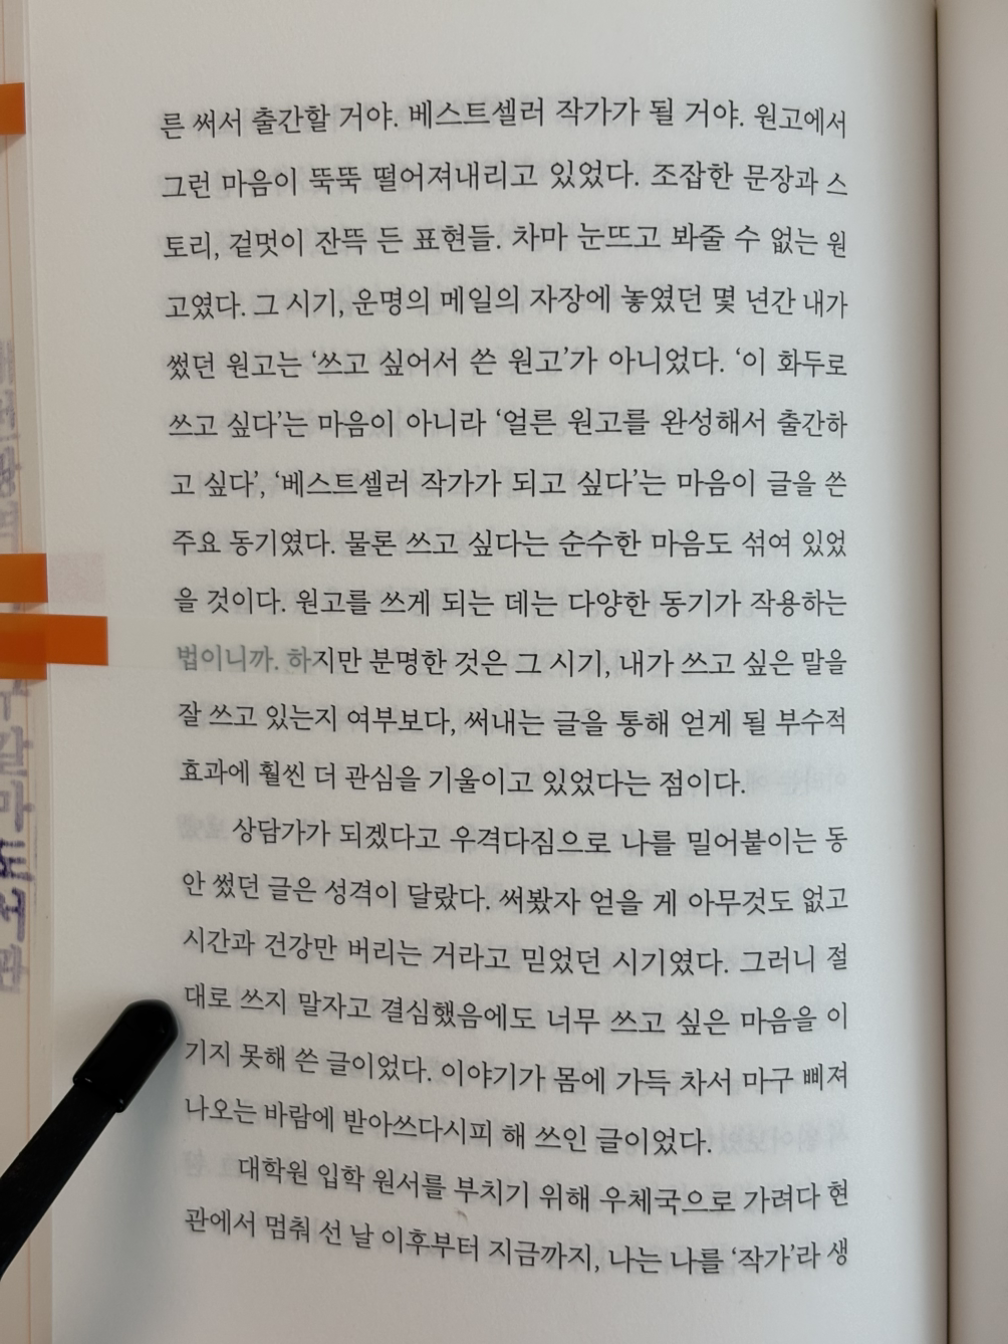 른 써서 출간할 거야. 베스트셀러 작가가 될 거야. 원고에서
그런 마음이 뚝뚝 떨어져내리고 있었다. 조잡한 문장과 스
토리, 겉멋이 잔뜩 든 표현들. 차마 눈뜨고 봐줄 수 없는 원
고였다. 그 시기, 운명의 메일의 자장에 놓였던 몇 년간 내가
썼던 원고는 ‘쓰고 싶어서 쓴 원고’가 아니었다. ‘이 화두로
쓰고 싶다’는 마음이 아니라 ‘얼른 원고를 완성해서 출간하
고 싶다’, ‘베스트셀러 작가가 되고 싶다’는 마음이 글을 쓴
주요 동기였다. 물론 쓰고 싶다는 순수한 마음도 섞여 있었
을 것이다. 원고를 쓰게 되는 데는 다양한 동기가 작용하는
법이니까. 하지만 분명한 것은 그 시기, 내가 쓰고 싶은 말을
잘 쓰고 있는지 여부보다, 써내는 글을 통해 얻게 될 부수적
효과에 훨씬 더 관심을 기울이고 있었다는 점이다.
상담가가 되겠다고 우격다짐으로 나를 밀어붙이는 동
안 썼던 글은 성격이 달랐다. 써봤자 얻을 게 아무것도 없고
시간과 건강만 버리는 거라고 믿었던 시기였다. 그러니 절
대로 쓰지 말자고 결심했음에도 너무 쓰고 싶은 마음을 이
기지 못해 쓴 글이었다. 이야기가 몸에 가득 차서 마구 삐져
나오는 바람에 받아쓰다시피 해 쓰인 글이었다.
대학원 입학 원서를 부치기 위해 우체국으로 가려다 현
관에서 멈춰 선 날 이후부터 지금까지, 나는 나를 ‘작가’라 생